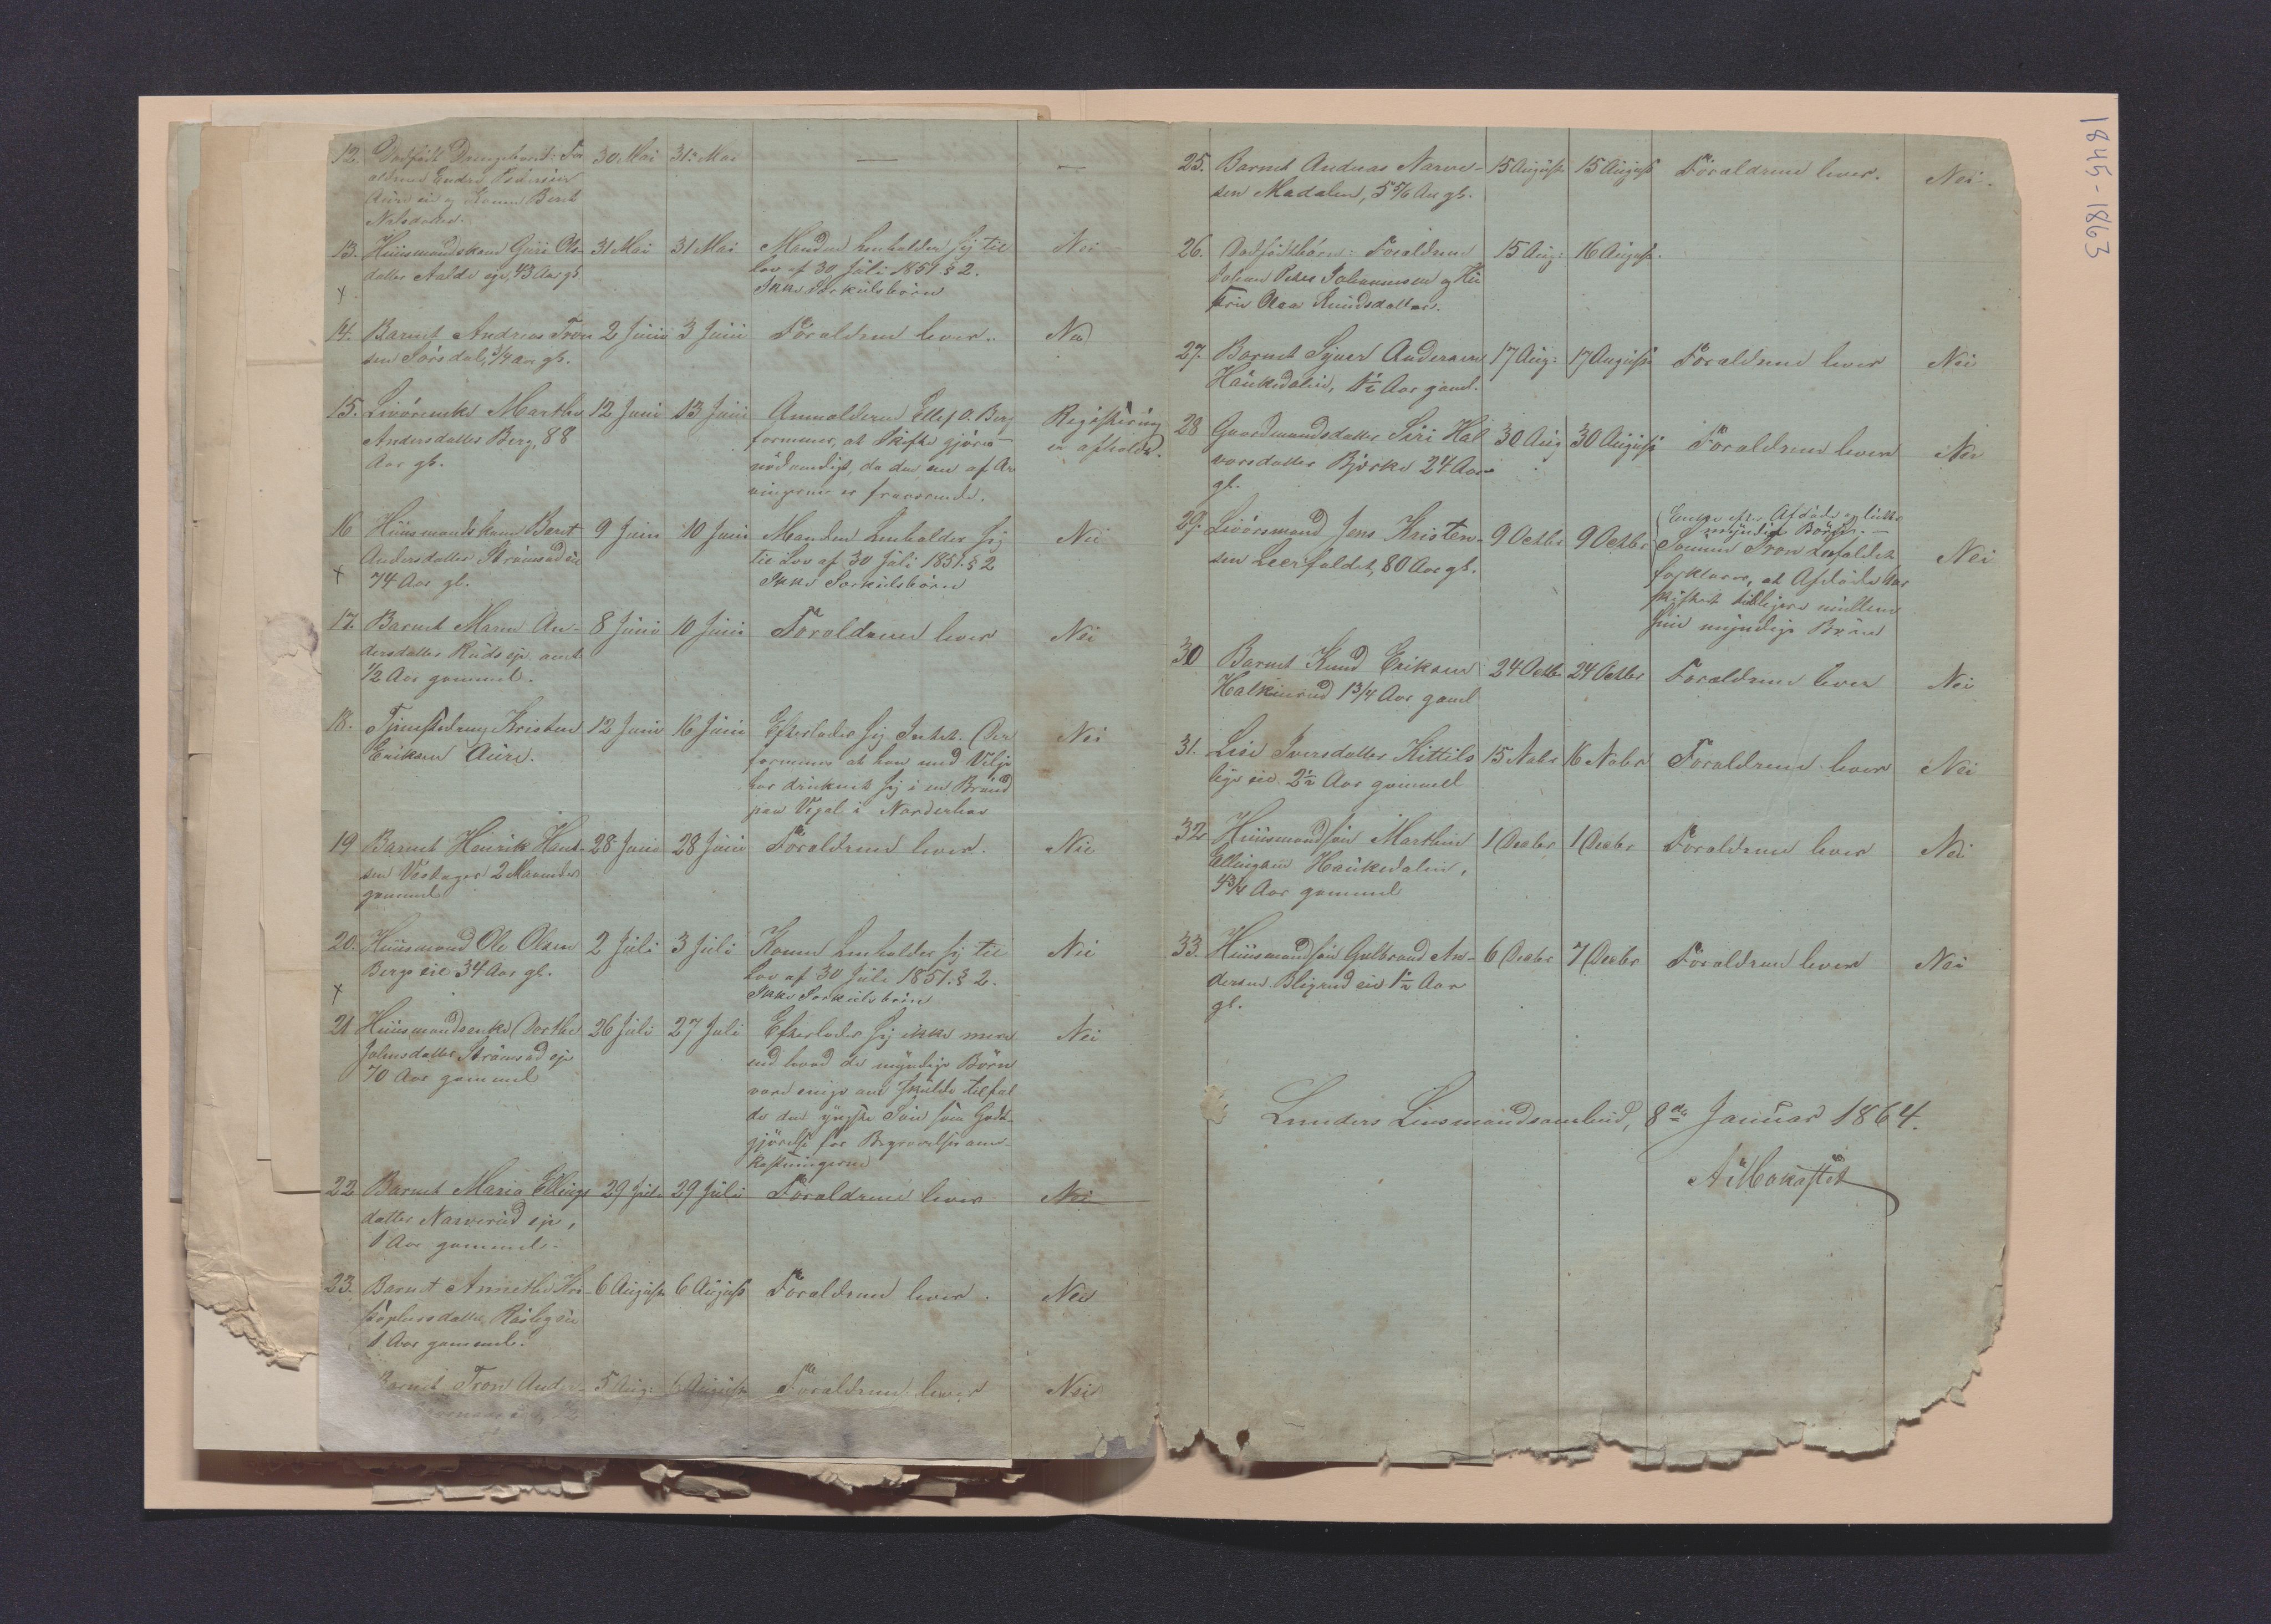 1845-1863
12. Dødfødt Drengebarn: For 30. Mai 31. Mai — —
ældrene Endre
Aure eie og Konen Berit
Nilsdatter.
13. Huusmandskone Guri Ols- 31 Mai 31 Mai Manden henholder sig til Nei
datter Aalde eje, 43 Aar gl. Lov af 30 Juli 1851 § 2.
x Ikke Særkulsbørn
14. Barnet Andreas Tron 2 Juni 3 Juni Forældrene lever. Nei
sen Sørsdal, 1/4 Aar gl.
15. Livørenke Marthe 12 Juni 13 Juni Anmelderen Ellef O. Berg Registrering
Andersdatter Berg, 88 formener, at Skifte gjøres er afholdt.
Aar gl. nødvendigt, da den ene af Ar
vingerne er fraværende.
16 Huusmandskone Berit 9 Juni 10 Juni Manden henholder sig Nei
Andersdatter Strømsødeie til Lov af 30 Juli 1851. § 2
x 74 Aar gl. Ikke Særkulsbørn
17. Barnet Maren An- 8 Juni 10 Juni Forældrene lever Nei
dersdatter Rudseje omt
1/2 Aar gammel.
18. Tjenestedreng Kristen 12 Juni 16 Juni Efterlader sig Intet. (Der Nei
Eriksen Aure. formenes at han med Vilje
har druknet sig i en Brønd
paa Vegal i Norderhov
19 Barnet Henrik Hans- 28 Juni 28 Juni Forældrene lever. Nei
sen Vestager 2 Maaneder
gammel
20. Huusmand Ole Olsen 2 Juli 3 Juli Konen henholder sig til Nei
Bergseie 34 Aar gl. Lov af 30 Juli 1851. § 2.
x Ikke Særkulsbørn
21 Huusmandsenke Dorthe 26 Juli 27 Juli Efterlader sig ikke mere Nei
Johnsdatter Strømsødeje end hvad de myndige Børn
70 Aar gammel vare enige om skulde tilfal
de den yngste Søn som Godt-
gjørelse for Begravelsesom-
kostningerne
22 Barnet Maria Ellings 29 Juli 29 Juli Forældrene lever Nei
datter Narverud eje,
1 Aar gammel.
23. Barnet Annethe Kri- 6 August 6 August Forældrene lever. Nei
stophersdatter
1 Aar gammel.
Barnet Tron Ander- 5 Aug: 6 August Forældrene lever Nei
25. Barnet Andreas Narve- 15 August 15 August Forældrene lever. Nei.
sen Madalen, 5 5/6 Aar gl.
26. Dødfødtbørn: Forældrene 15 Aug: 16 August.
Johan Peter Johannesen og Hu
stru Olea Knudsdatter.
27. Barnet Syver Andersen 17 Aug: 17 August Forældrene lever Nei
Haukedalen, 1½ Aar gaml.
28 Gaardmandsdatter Siri Hal 30 Aug 30 August Forældrene lever Nei
vorsdatter Bjørke 24 Aar
gl.
29. Livøremand Jens Kristen- 9 Octbr 9 Octbr Enke efter Afdøde og lutter
sen Leerfaldet, 80 Aar gl. myndige Børn. —
Sønnen Tron Leerfaldet Nei
forklarer, at Afdøde har
skiftet tidligere mellem
sine myndige Børn
30 Barnet Knud Eriksen 24 Octbr 24 Octbr Forældrene lever Nei
Halkinrud 1 3/4 Aar gaml
31. Lise Iversdatter Kittils 15 Nobr 16 Nobr Forældrene lever Nei
eie 2½ Aar gammel
32 Huusmandssøn Marthin 1 Decbr 1 Decbr Forældrene lever Nei
Ellingsen Haukedalen,
4 3/4 Aar gammel
33. Huusmandssøn Gulbrand An- 6 Decbr 7 Decbr Forældrene lever Nei
dersen Bligrud eie 1½ Aar
gl.
Lunders Lensmandsombud, 8de Januar 1864.